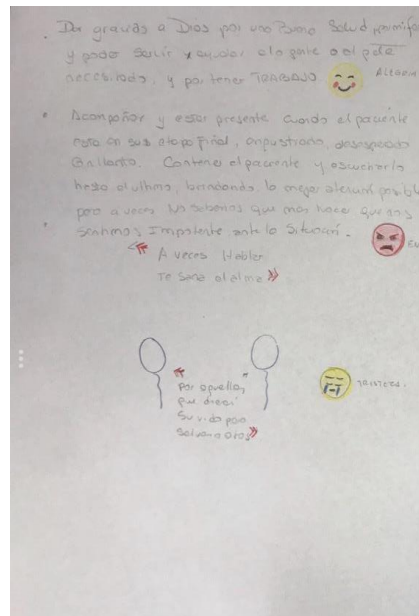 . Dar gracias a Dios por una Buena Salud
y poder servir y ayudar a la gente o al pcte
necesitado, y por tener TRABAJO.
• Acompañar y estar presente cuando el paciente
esta en sus etapa final, angustiado, desesperado
Contener al paciente y escucharlo
hasta el ultimo, brindando la mejor atención posible
pero a veces No sabemos que mas hacer que nos
sentimos Impotente ante la Situación.
“A veces Hablar
Te sana el alma”
“Por aquellos
que
su vida por
Salvar a otros”